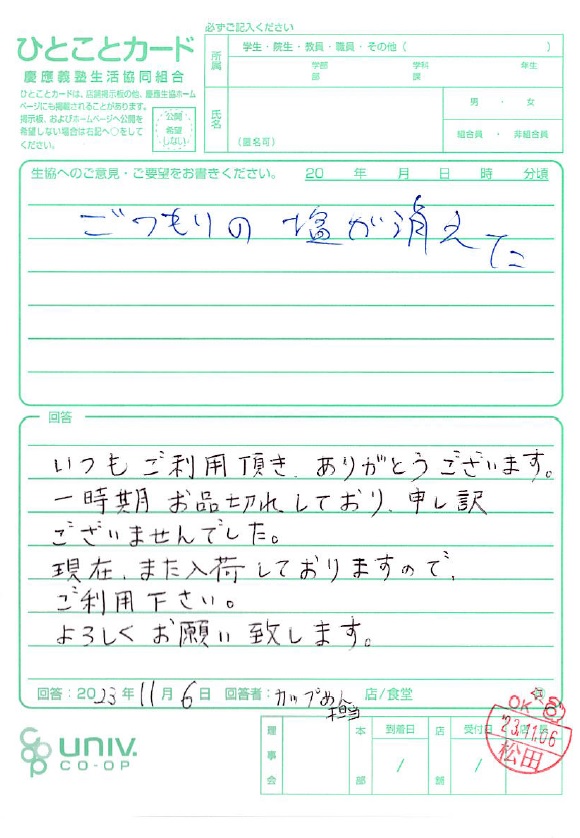 ひとことカード
慶應義塾生活協同組合
ひとことカードは、店舗掲示板の他、慶應生協ホーム
ページにも掲載されることがあります。
掲示板、およびホームページへ公開を
希望しない場合は右記へ○をして
ください。
公開
希望
しない
必ずご記入ください
所属
学生・院生・教員・職員・その他（　　　）
学部 学科 年生
部 課
氏名
（匿名可）
男 ・ 女
組合員 ・ 非組合員
生協へのご意見・ご要望をお書きください。 20 年 月 日 時 分頃
ごつもりの 塩が消えてた
回答
いつもご利用頂き、ありがとうございます。
一時期お品切れしており、申し訳
ございませんでした。
現在、また入荷しておりますので、
ご利用下さい。
よろしくお願い致します。
回答：2023年11月6日 回答者：カップめん担当 店/食堂
UNIV.
CO-OP
理事会
本部
到着日
/
店舗
受付日
/
OK
'23.11.06
松田